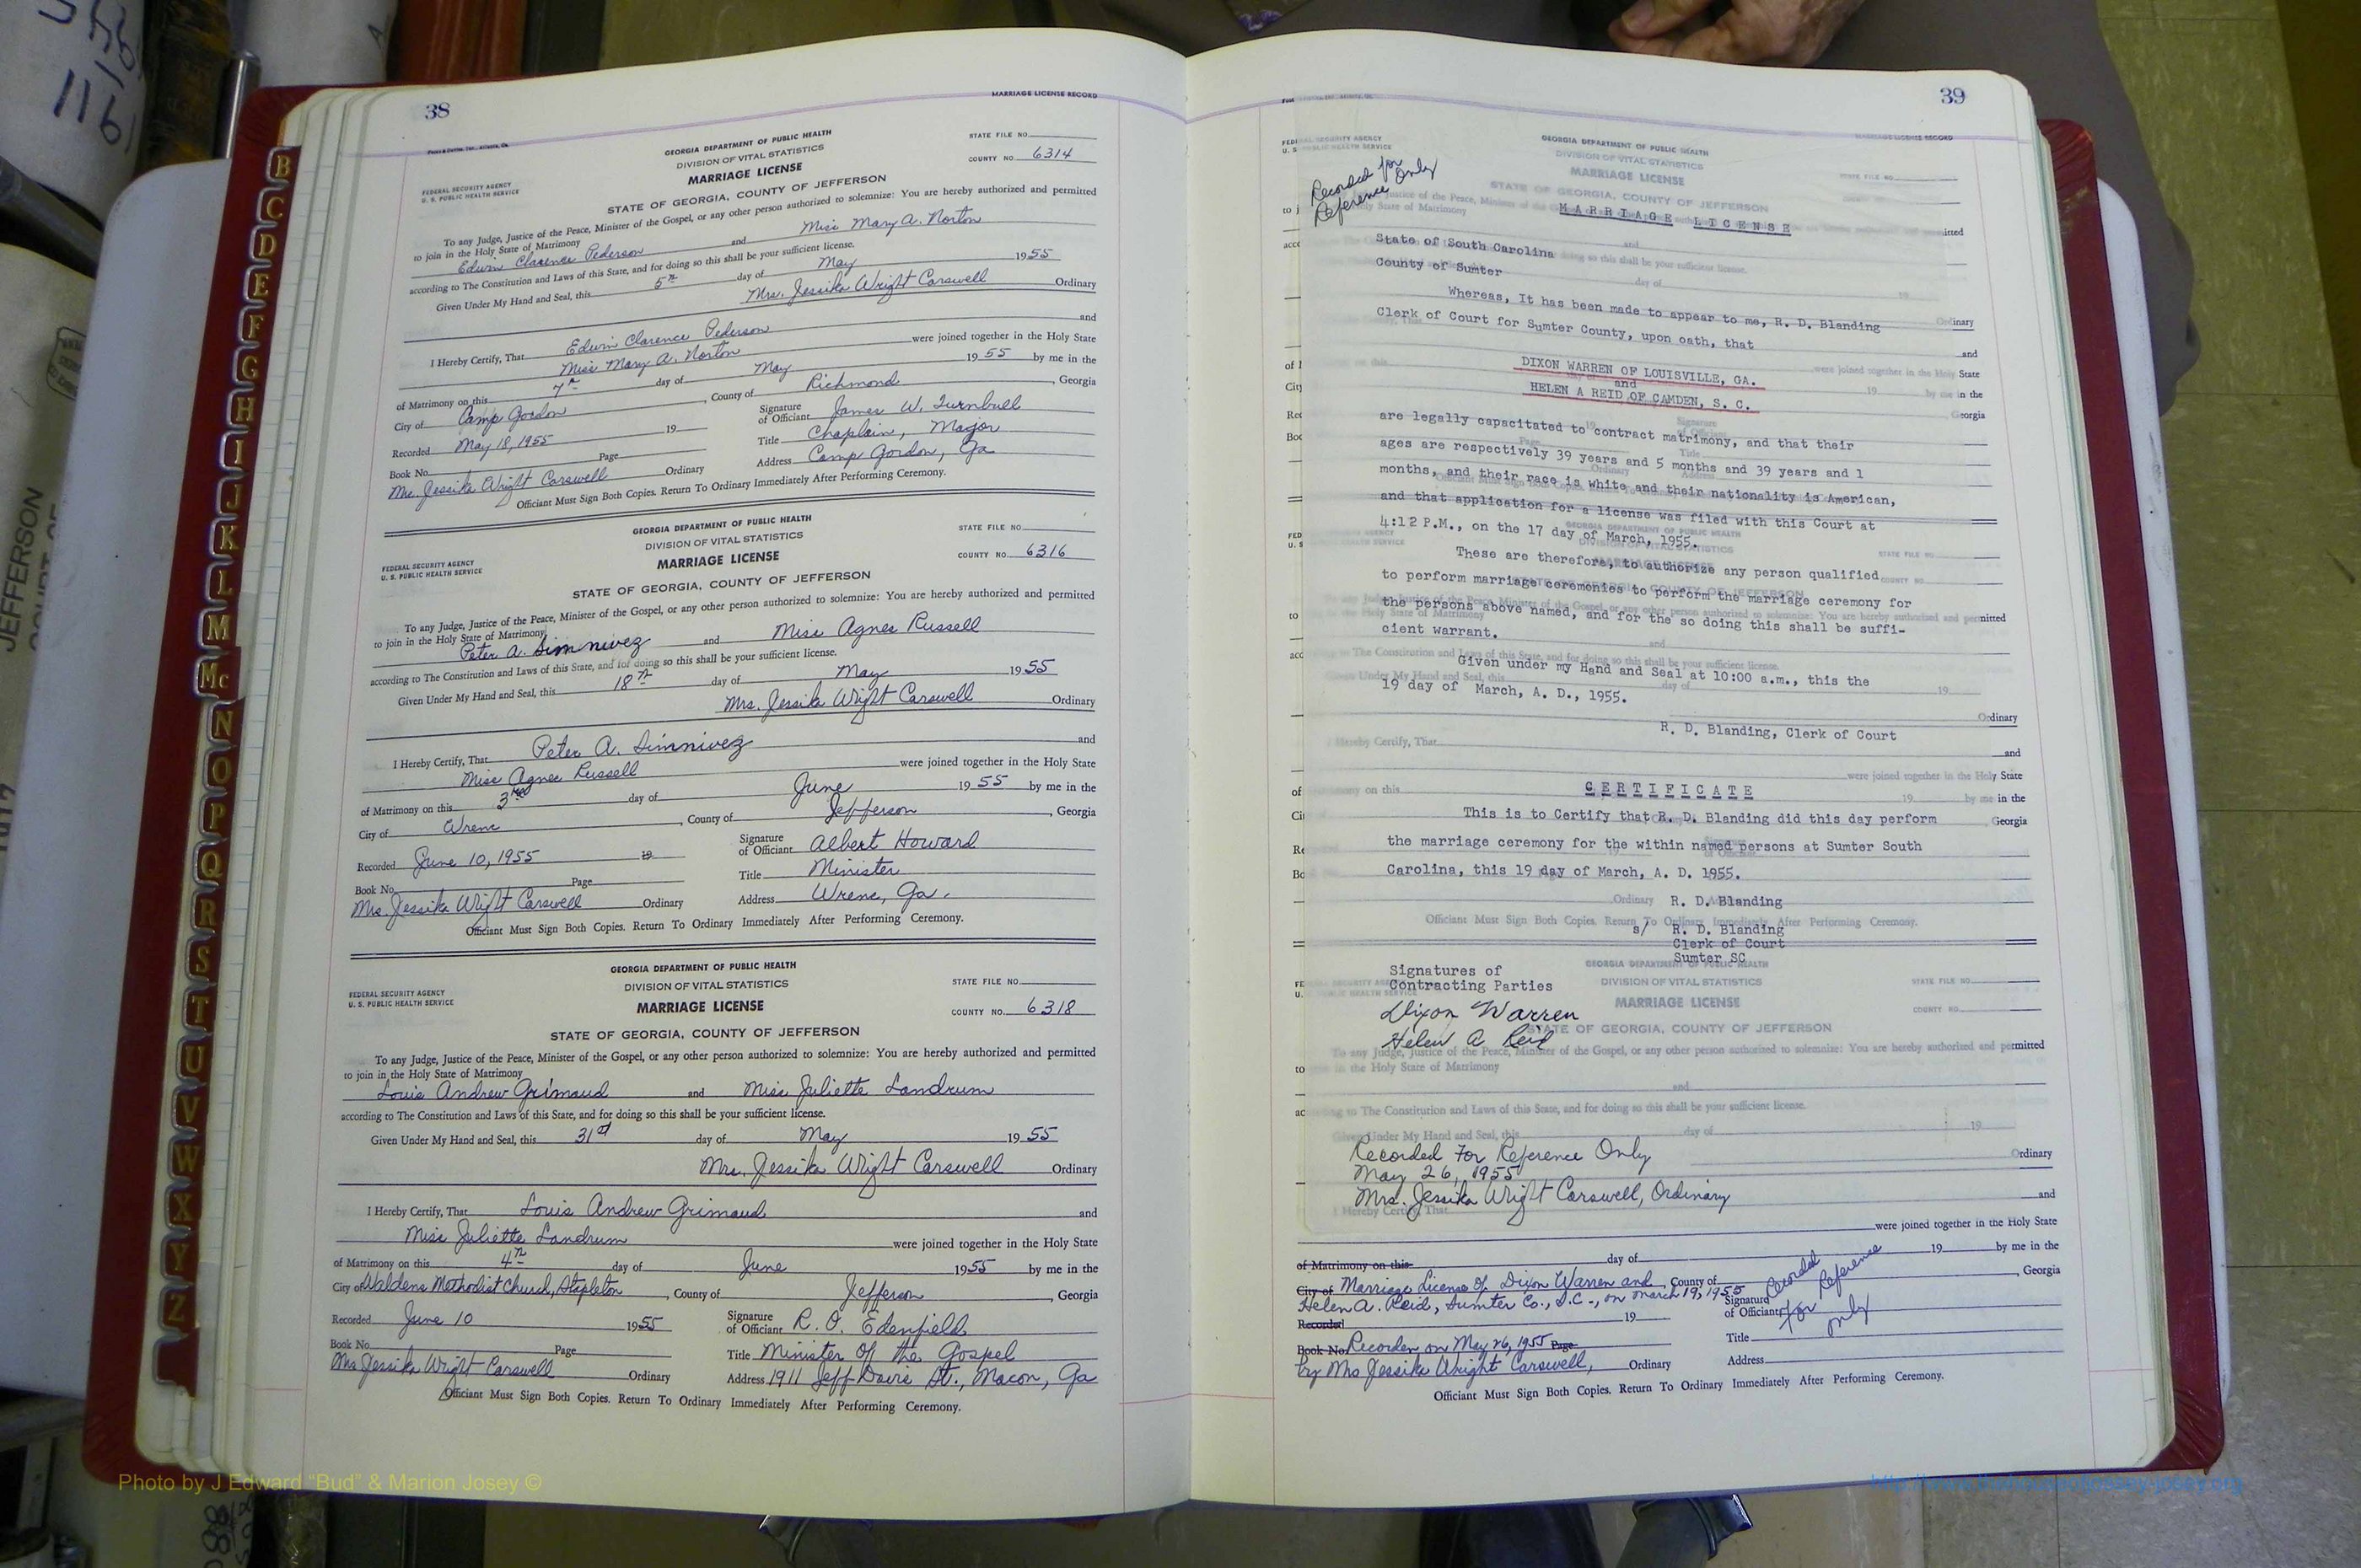 38
MARRIAGE LICENSE RECORD
GEORGIA DEPARTMENT OF PUBLIC HEALTH
DIVISION OF VITAL STATISTICS
MARRIAGE LICENSE
STATE OF GEORGIA, COUNTY OF JEFFERSON
STATE FILE NO.
COUNTY NO. 6314
FEDERAL SECURITY AGENCY
U. S. PUBLIC HEALTH SERVICE
To any Judge, Justice of the Peace, Minister of the Gospel, or any other person authorized to solemnize: You are hereby authorized and permitted
to join in the Holy State of Matrimony
Edwin Clarence Pederson and Miss Mary A. Norton
according to The Constitution and Laws of this State, and for doing so this shall be your sufficient license.
Given Under My Hand and Seal, this 5th day of May 1955
Mrs. Jessika Wright Carswell Ordinary
I Hereby Certify, That Edwin Clarence Pederson and
Miss Mary A. Norton were joined together in the Holy State
of Matrimony on this 7th day of May 1955 by me in the
City of Camp Gordon, County of Richmond, Georgia
Recorded May 18, 1955 19
Signature of Officiant James W. Turnbull
Book No. Page
Title Chaplain, Major
Mrs. Jessika Wright Carswell Ordinary
Address Camp Gordon, Ga
Officiant Must Sign Both Copies. Return To Ordinary Immediately After Performing Ceremony.
GEORGIA DEPARTMENT OF PUBLIC HEALTH
DIVISION OF VITAL STATISTICS
MARRIAGE LICENSE
STATE OF GEORGIA, COUNTY OF JEFFERSON
STATE FILE NO.
COUNTY NO. 6316
FEDERAL SECURITY AGENCY
U. S. PUBLIC HEALTH SERVICE
To any Judge, Justice of the Peace, Minister of the Gospel, or any other person authorized to solemnize: You are hereby authorized and permitted
to join in the Holy State of Matrimony
Peter A. Simnivez and Miss Agnes Russell
according to The Constitution and Laws of this State, and for doing so this shall be your sufficient license.
Given Under My Hand and Seal, this 18th day of May 1955
Mrs. Jessika Wright Carswell Ordinary
I Hereby Certify, That Peter A. Simnivez and
Miss Agnes Russell were joined together in the Holy State
of Matrimony on this 3rd day of June 1955 by me in the
City of Wrens, County of Jefferson, Georgia
Recorded June 10, 1955 19
Signature of Officiant Albert Howard
Title Minister
Book No. Page
Mrs. Jessika Wright Carswell Ordinary
Address Wrens, Ga.
Officiant Must Sign Both Copies. Return To Ordinary Immediately After Performing Ceremony.
GEORGIA DEPARTMENT OF PUBLIC HEALTH
DIVISION OF VITAL STATISTICS
MARRIAGE LICENSE
STATE OF GEORGIA, COUNTY OF JEFFERSON
STATE FILE NO.
COUNTY NO. 6318
FEDERAL SECURITY AGENCY
U. S. PUBLIC HEALTH SERVICE
To any Judge, Justice of the Peace, Minister of the Gospel, or any other person authorized to solemnize: You are hereby authorized and permitted
to join in the Holy State of Matrimony
Louis Andrew Grimaud and Miss Juliette Landrum
according to The Constitution and Laws of this State, and for doing so this shall be your sufficient license.
Given Under My Hand and Seal, this 31st day of May 1955
Mrs. Jessika Wright Carswell Ordinary
I Hereby Certify, That Louis Andrew Grimaud and
Miss Juliette Landrum were joined together in the Holy State
of Matrimony on this 4th day of June 1955 by me in the
City of Waldens Methodist Church, Stapleton, County of Jefferson, Georgia
Recorded June 10 1955
Signature of Officiant R. O. Edenfield
Book No. Page
Title Minister Of the Gospel
Mrs Jessika Wright Carswell Ordinary
Address 1911 Jeff Davis St., Macon, Ga
Officiant Must Sign Both Copies. Return To Ordinary Immediately After Performing Ceremony.
B
C
D
E
F
G
H
I
J
K
L
M
Mc
N
O
P
Q
R
S
T
U
V
W
X
Y
Z
39
Recorded for
Reference Only
MARRIAGE LICENSE
State of South Carolina
County of Sumter
Whereas, It has been made to appear to me, R. D. Blanding
Clerk of Court for Sumter County, upon oath, that
DIXON WARREN OF LOUISVILLE, GA.
and
HELEN A REID OF CAMDEN, S. C.
are legally capacitated to contract matrimony, and that their
ages are respectively 39 years and 5 months and 39 years and 1
months, and their race is white and their nationality is American,
and that application for a license was filed with this Court at
4:12 P.M., on the 17 day of March, 1955.
These are therefore, to authorize any person qualified
to perform marriage ceremonies to perform the marriage ceremony for
the persons above named, and for the so doing this shall be suffi-
cient warrant.
Given under my Hand and Seal at 10:00 a.m., this the
19 day of March, A. D., 1955.
R. D. Blanding, Clerk of Court
CERTIFICATE
This is to Certify that R. D. Blanding did this day perform
the marriage ceremony for the within named persons at Sumter South
Carolina, this 19 day of March, A. D. 1955.
R. D. Blanding
s/ R. D. Blanding
Clerk of Court
Sumter SC
Signatures of
Contracting Parties
Dixon Warren
Helen A Reid
Recorded For Reference Only
May 26, 1955
Mrs. Jessika Wright Carswell, Ordinary
were joined together in the Holy State
of Matrimony on this day of 19 by me in the
City of Marriage License Of Dixon Warren and County of , Georgia
Helen A. Reid, Sumter Co., S.C., on March 19, 1955
Recorded 19
Signature of Officiant
Recorded for Reference only
Book No. Recorded on May 26, 1955 Page
Title
by Mrs Jessika Wright Carswell, Ordinary
Address
Officiant Must Sign Both Copies. Return To Ordinary Immediately After Performing Ceremony.
JEFFERSON
Photo by J Edward "Bud" & Marion Josey ©